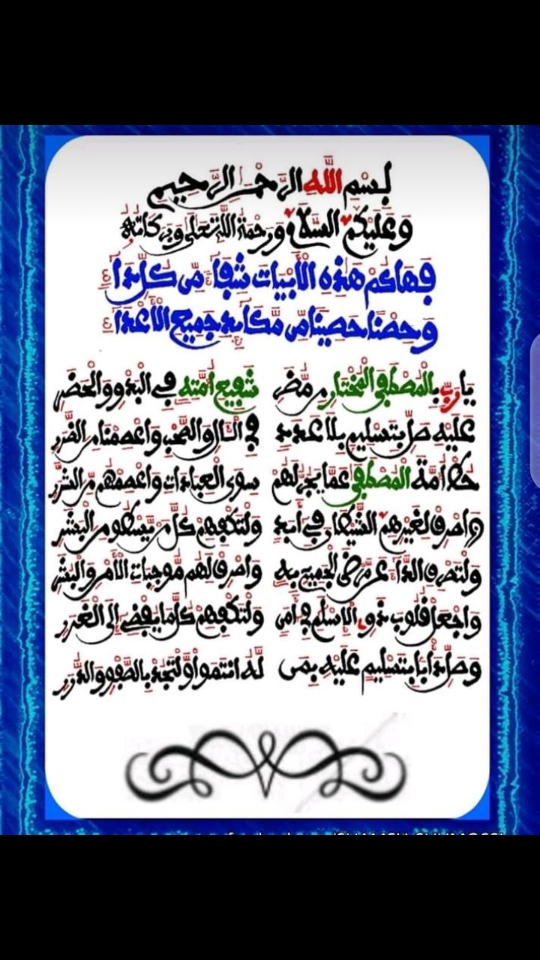 بسم الله الرحمن الرحيم
وعليكم السلام ورحمة الله تعلى وبركاته
فهاكم هذه الأبيات شفاء من كل داء
وحصنا حصينا من مكائد جميع الأعداء
يا رب بالمصطفى المختار من مضر شفيع أمته في البدو والحضر
عليه صل بتسليم بلا عدد في الآل والصحب واعصمنا من الضرر
أمة المصطفى عما يجر لهم سوى العبادات واعصمهم من الشرر
واصرف لغيرهم الشيطان في أبد ولتكفهم كل من يسطو من البشر
ولتصرف الداء عن مرضى الجميع به واصرف لهم موجبات الأمن والبشر
واجعل قلوب ذوي الإسلام في أمن ولتكفهم كل ما يفضي إلى الغرر
وصل أبدا بتسليم عليه بمن له انتموا أولا بالصفو والدرر